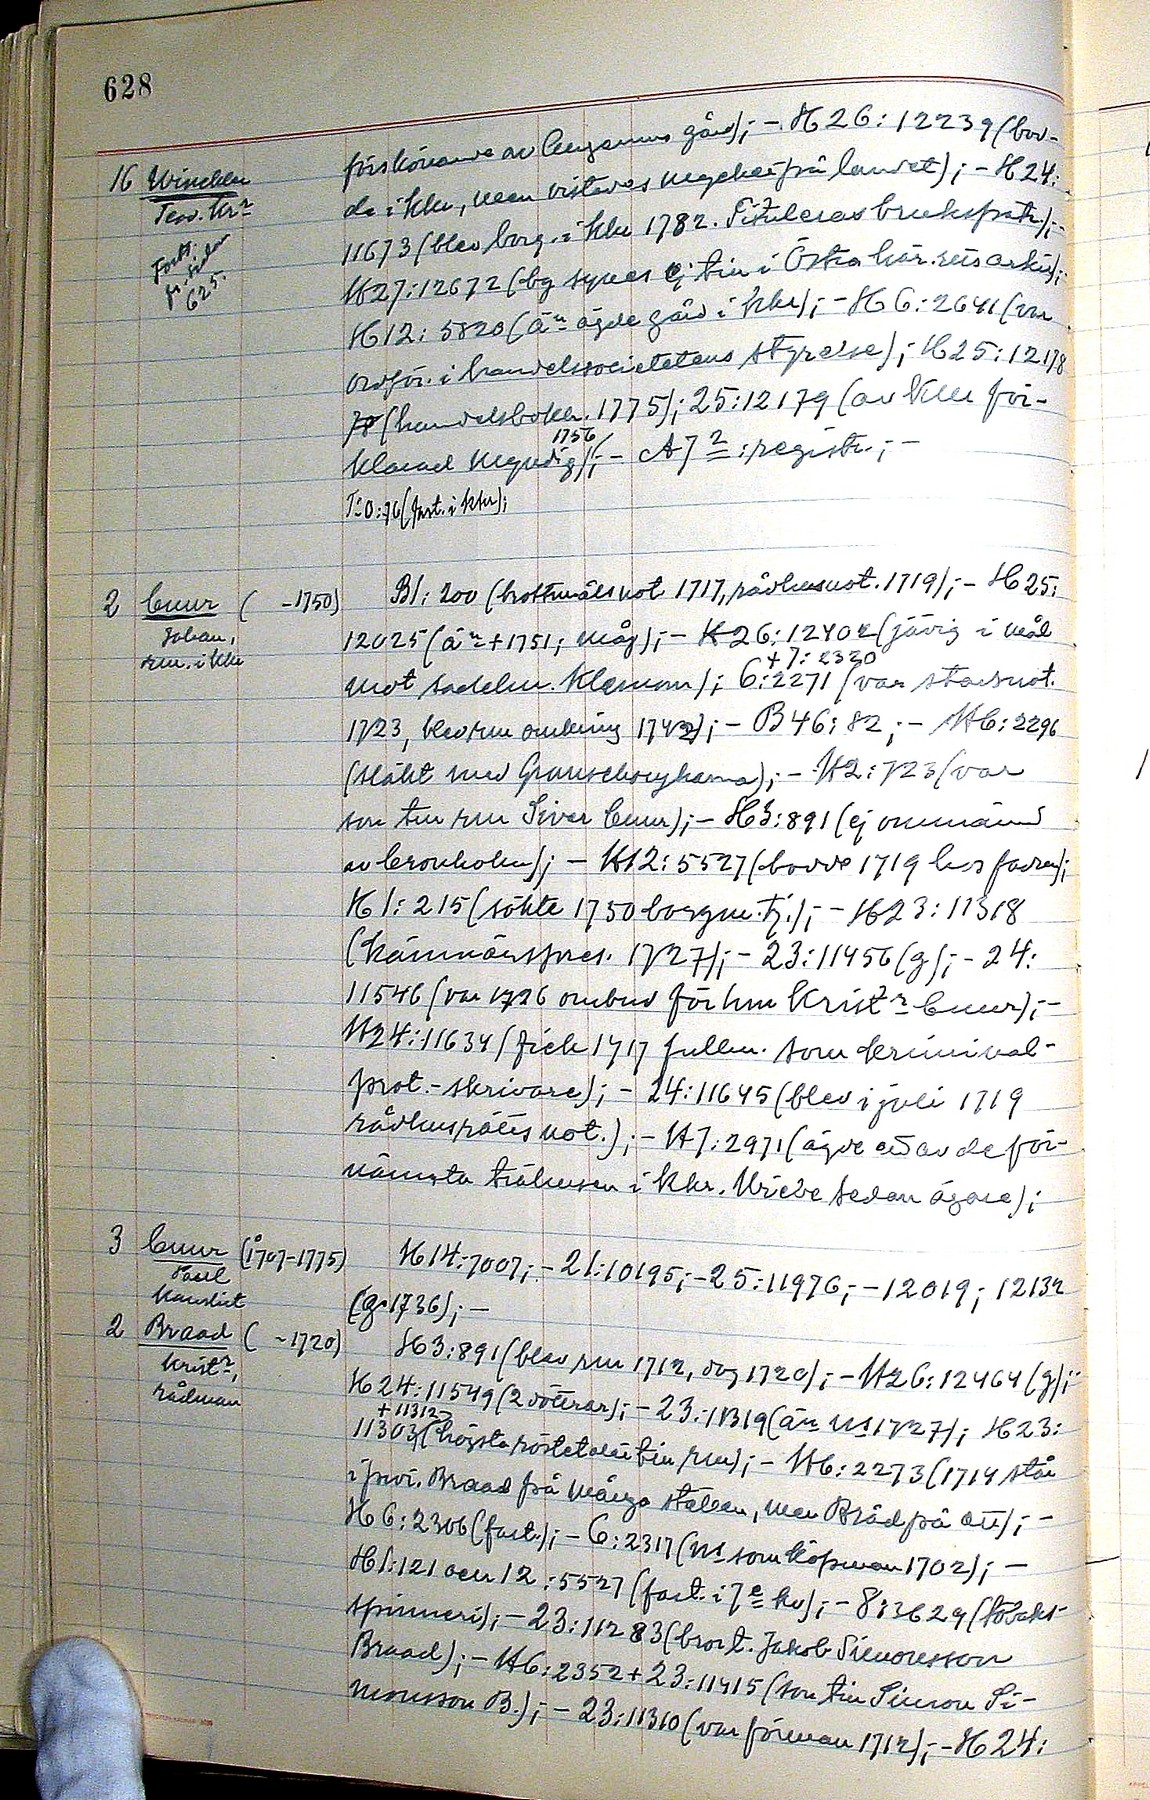 628
förskönande av gård); - H26:12239 (bod-
16 Winckler
de i Khr, men vistades mycket på landet); - H24:
Teod. Kr:r
11673 (blev borg. i Khr 1782. Tituleras brukspatr.); -
Forts. fr. sidan 625.
H27:12672 (bg synes ej bin i Östra här. rens arkiv);
H12:5820 (än ägde gård i Khr); - H6:2641 (var
ordför. i handelssocietetens styrelse); H25:12178
(handelsbokh. 1775); 25:12179 (av Khr för-
klarad myndig 1756); - A72: registr.; -
T:0:76 (fast. i khr);
2 Cuur ( -1750) B1:200 (brottmålsnot 1717, rådhusnot. 1719); - H25:
Johan, rm. i Khr
12025 (än +1751; måg); - H26:12402 (jävig i mål
+7:2320
mot sadelm. Klemom); 6:2271 (var stadsnot.
1723, blev rm omkring 1742); - B46:82; - H6:2296
(släkt med); - H2:723 (var
son till rm Siver Cuur); - H3:891 (ej omnämnd
av Cronholm); - H12:5527 (bodde 1719 hos fadren);
H1:215 (sökte 1750 borgm. tj.); - H23:11318
(kämnärspres. 1727); - 23:11456 (g); - 24:
11546 (var 1726 ombud för hm Krist:r Cuur); -
H24:11634 (fick 1717 fullm. som kriminal-
prot.-skrivare); - 24:11645 (blev i juli 1719
rådhusrätts not.); - H7:2971 (ägde ett av de för-
nämsta trähusen i Khr. Wriede sedan ägare);
3 Cuur (1707-1775) H14:7007; - 21:10195; - 25:11976; - 12019; 12132
Paul
(g. 1736); -
2 Braad ( -1720) H3:891 (blev rm 1712, dog 1720); - H26:12464 (g);
Krist:r, rådman
H24:11549 (2 döttrar); - 23:11319 (än 1727); H23:
+11312
11303 (högsta röstetalet till rm); - H6:2273 (1714 står
i Braad på många ställen, men Bråd på ett); -
H6:2306 (fast.); - 6:2317 (som köpman 1702); -
H1:121 och 12:5527 (fast. i 7e kv); - 8:3629 (tobaks-
spinneri); - 23:11283 (bror t. Jakob Simonsson
Braad); - H6:2352 + 23:11415 (son till Simon Si-
monsson B.); - 23:11310 (var förman 1712); - H24: